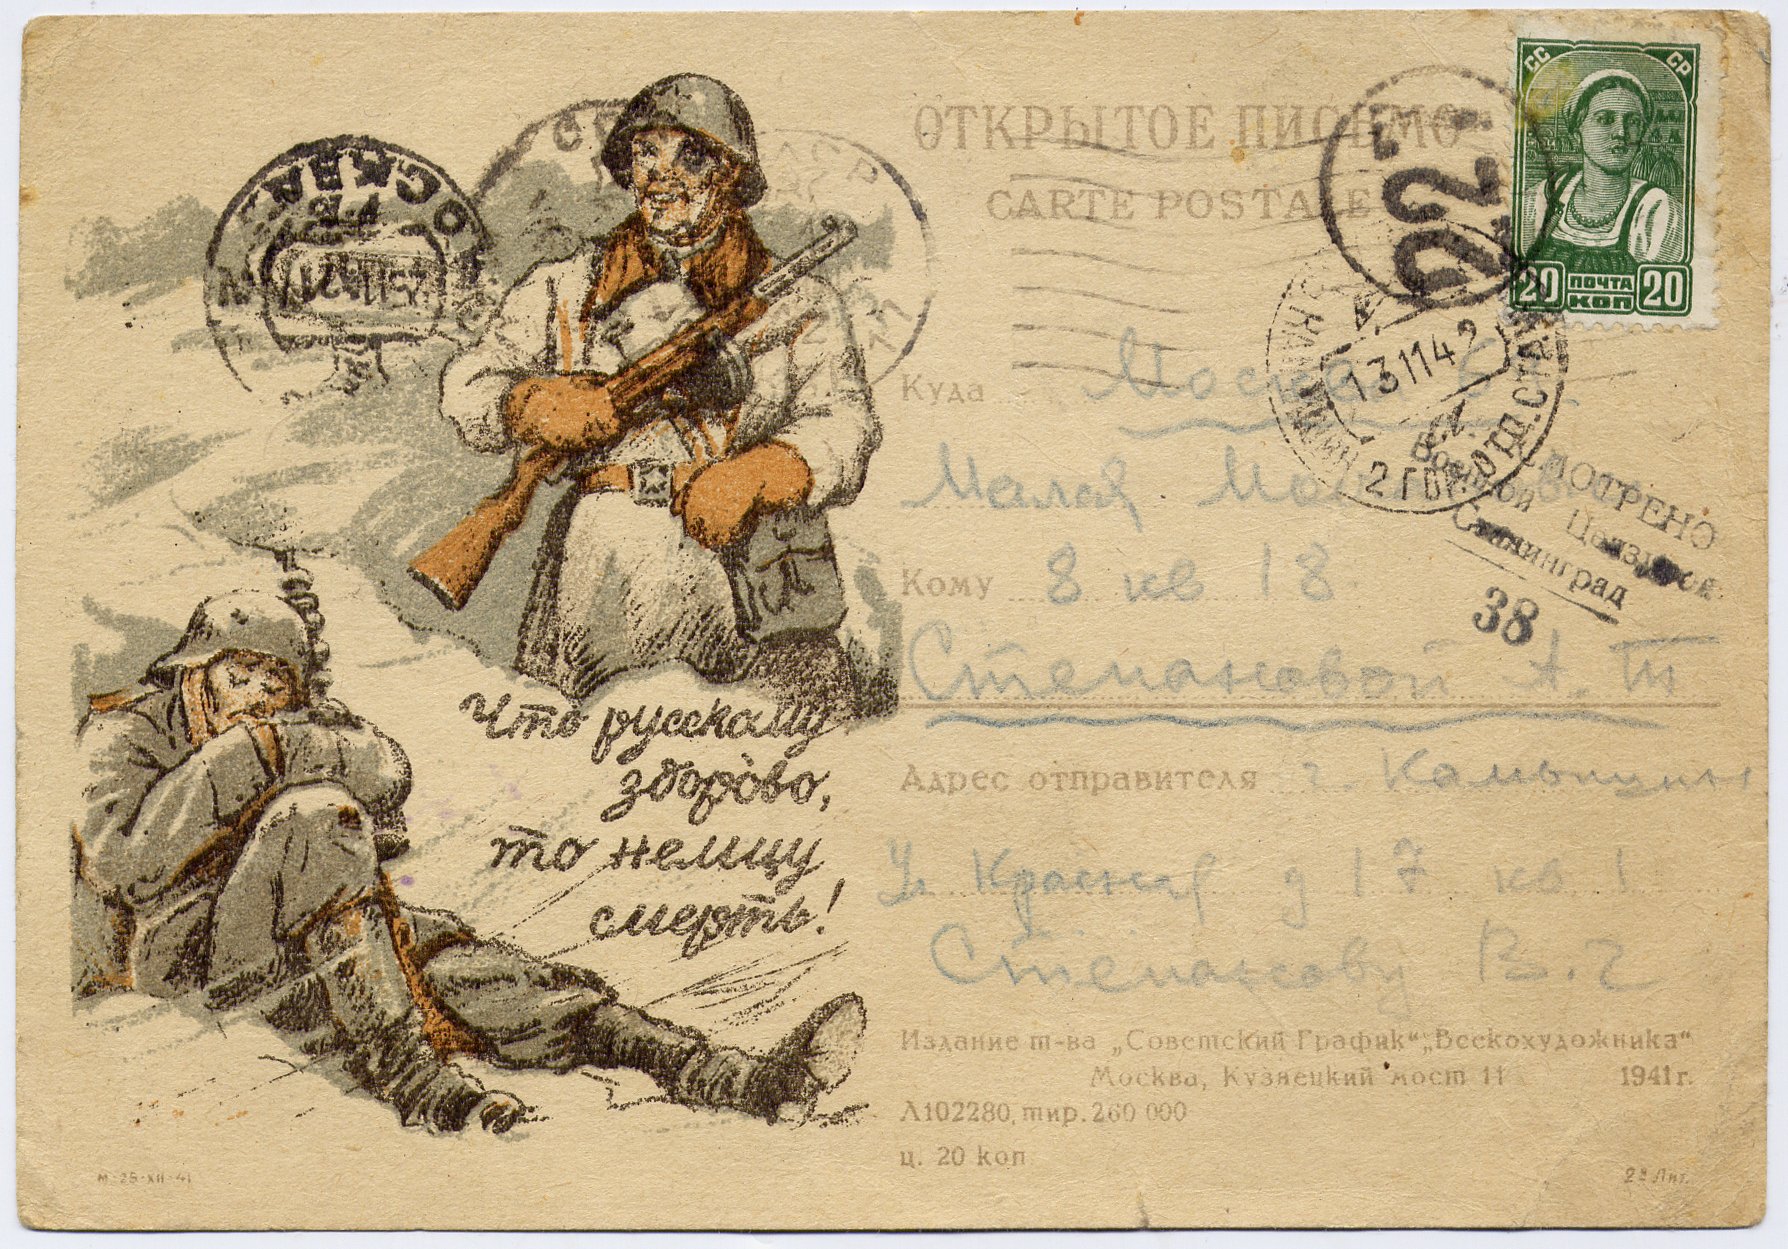 ОТКРЫТОЕ ПИСЬМО
CARTE POSTALE
СС СР
20 ПОЧТА КОП 20
022
13 11 42
2 ГОР. ОТД.
МОСКВА
Куда Москва
Малая
Кому 8 кв 18
Степановой А. Т
СМОТРЕНО
Военной Цензурой
Сталинград
38
Адрес отправителя г. Камышин
ул Красная д 17 кв 1
Степанову В. Г
Что русскому
здорово,
то немцу
смерть!
Издание т-ва „Советский График" „Всекохудожника"
Москва, Кузнецкий мост 11 1941 г.
Л102280, тир. 260 000
ц. 20 коп
М-25-XII-41
2я Лит.